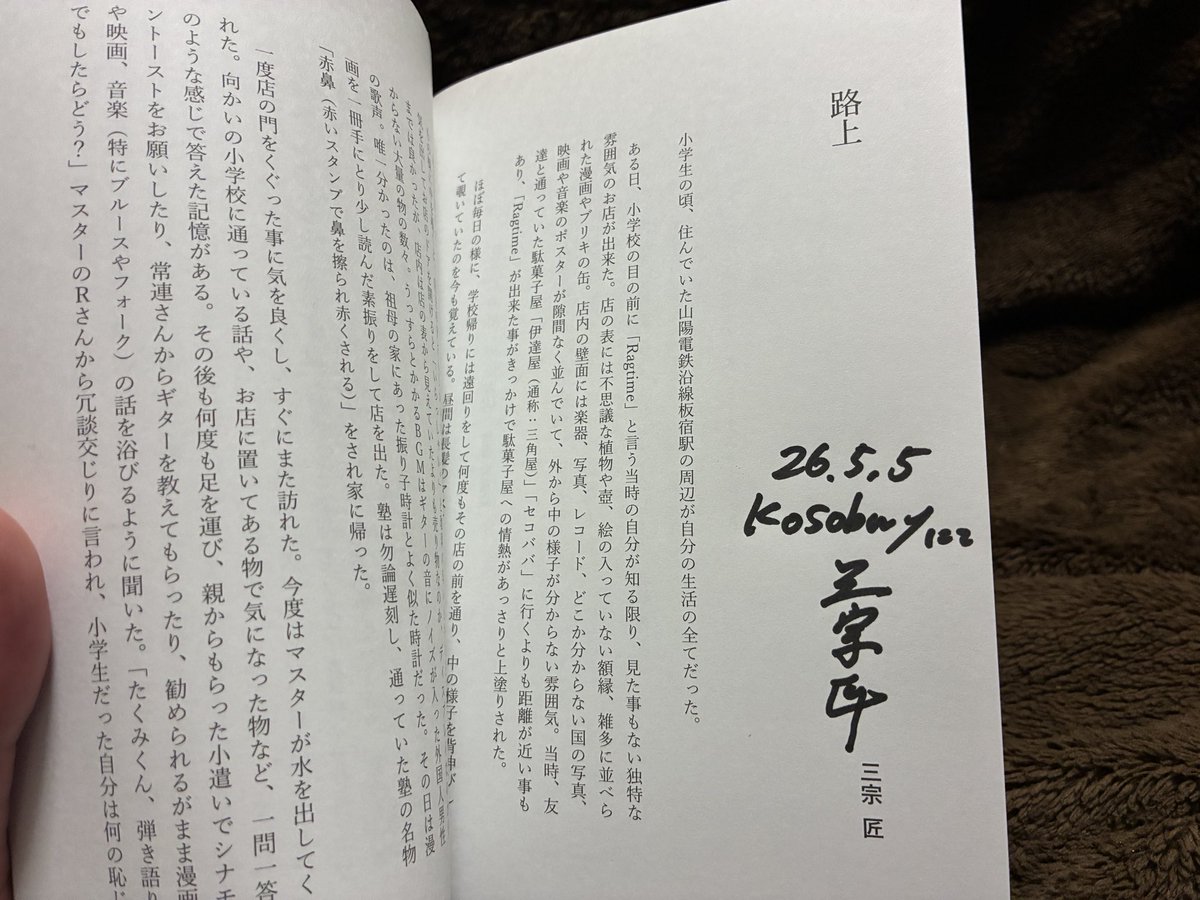 路上
26.5.5
Kosobuny122
三宗匠
三宗 匠
小学生の頃、住んでいた山陽電鉄沿線板宿駅の周辺が自分の生活の全てだった。
ある日、小学校の目の前に「Ragtime」と言う当時の自分が知る限り、見た事もない独特な
雰囲気のお店が出来た。店の表には不思議な植物や壺、絵の入っていない額縁、雑多に並べら
れた漫画やブリキの缶。店内の壁面には楽器、写真、レコード、どこか分からない国の写真、
映画や音楽のポスターが隙間なく並んでいて、外から中の様子が分からない雰囲気。当時、友
達と通っていた駄菓子屋「伊達屋（通称：三角屋）」「セコババ」に行くよりも距離が近い事も
あり、「Ragtime」が出来た事がきっかけで駄菓子屋への情熱があっさりと上塗りされた。
ほぼ毎日の様に、学校帰りには遠回りをして何度もその店の前を通り、中の様子を背伸び
て覗いていたのを今も覚えている。昼間は長髪の
までは良かったが、店内は店の表から見えていた
からない大量の物の数々。うっすらとかかるBGMはギターの音にノイズが入った外国人男性
の歌声。唯一分かったのは、祖母の家にあった振り子時計とよく似た時計だった。その日は漫
画を一冊手にとり少し読んだ素振りをして店を出た。塾は勿論遅刻し、通っていた塾の名物
「赤鼻（赤いスタンプで鼻を擦られ赤くされる）」をされ家に帰った。
一度店の門をくぐった事に気を良くし、すぐにまた訪れた。今度はマスターが水を出してく
れた。向かいの小学校に通っている話や、お店に置いてある物で気になった物など、一問一答
のような感じで答えた記憶がある。その後も何度も足を運び、親からもらった小遣いでシナモ
ントーストをお願いしたり、常連さんからギターを教えてもらったり、勧められるがまま漫画
や映画、音楽（特にブルースやフォーク）の話を浴びるように聞いた。「たくみくん、弾き語り
でもしたらどう？」マスターのRさんから冗談交じりに言われ、小学生だった自分は何の恥じ